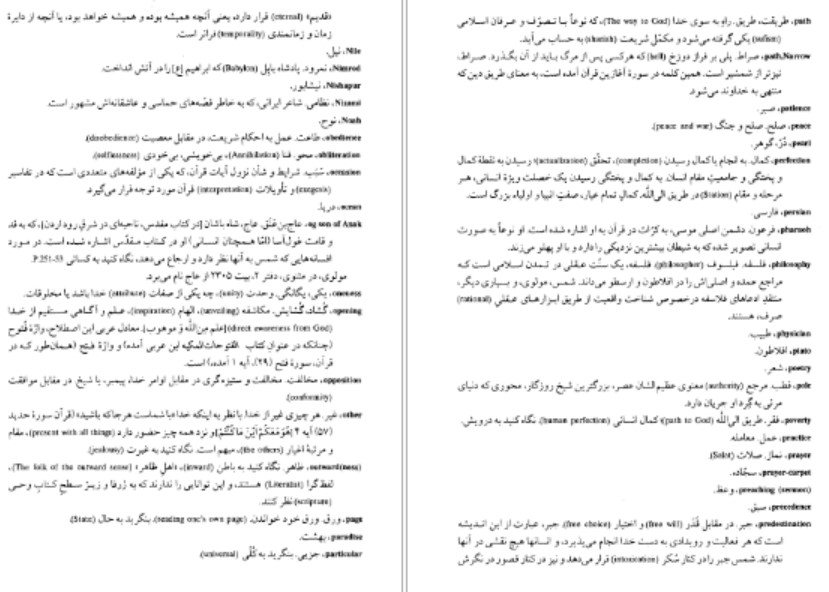 «قدیم» (eternal) قرار دارد، یعنی آنچه همیشه بوده و همیشه خواهد بود، یا آنچه از دایرهٔ
زمان و زمانمندی (temporality) فراتر است.
Nile، نیل.
Nimrod، نمرود. پادشاه بابل (Babylon) که ابراهیم [ع] را در آتش انداخت.
Nishapur، نیشابور.
Nizami، نظامی. شاعر ایرانی، که به خاطر قصّه‌های حماسی و عاشقانه‌اش مشهور است.
Noah، نوح.
obedience، طاعت. عمل به احکام شریعت، در مقابل معصیت (disobedience).
obliteration، محو. فنا (Annihilation)، بی‌خویشی، بی‌خودی (selflessness).
occasion، سَبَب. شرایط و شأن نزول آیات قرآن، که یکی از مؤلفه‌های متعددی است که در تفاسیر
(exegesis) و تأویلات (interpretation) قرآن مورد توجه قرار می‌گیرد.
ocean، دریا.
og son of Anak، عاج‌بن‌عَنَق. عاج، شاه باشان [در کتاب مقدس، ناحیه‌ای در شرق رود اردن]، که به قد
و قامت غول‌آسا (امّا همچنان انسانی) او در کتاب مقدّس اشاره شده است. در مورد
افسانه‌هایی که شمس به آنها نظر دارد و ارجاع می‌دهد، نگاه کنید به کسائی P.251-53
مولوی، در مثنوی، دفتر ۲، بیت ۲۳۰۵ از عاج نام می‌برد.
oneness، یکی، یگانگی. وحدت (unity)، چه یکی از صفات (attribute) خدا باشد یا مخلوقات.
opening، گُشاد، گُشایش. مکاشفه (unveiling)، الهام (inspiration)، علم و آگاهی مستقیم از خدا
(direct awareness from God) [علم مِن‌اللّه و موهوب]. معادل عربی این اصطلاح، واژهٔ فُتوح
(چنانکه در عنوان کتاب الفتوحات‌المکیه ابن عربی آمده) و واژهٔ فتح (همان‌طور که در
قرآن، سورهٔ فتح (۲۹)، آیه ۱ آمده،) است.
opposition، مخالفت. مخالفت و ستیزه‌گری در مقابل اوامر خدا، پیمبر، یا شیخ. در مقابل موافقت
(conformity).
other، غیر. هر چیزی غیر از خدا. با نظر به اینکه خدا «با شماست هر جا که باشید» (قرآن سورهٔ حدید
(۵۷) آیه ۴ [هُوَمَعَكُمْ أَیْنَ مَاكُنْتُمْ] و نزد همه چیز حضور دارد (present with all things)، مقام
و مرتبهٔ اغیار (the others)، مبهم است. نگاه کنید به غیرت (jealousy).
outward(ness)، ظاهر. نگاه کنید به باطن (inward)، «اهل ظاهر» (The folk of the outward sense)،
لفظ‌گرا (Literalist) هستند، و این توانایی را ندارند که به ژرفا و زیرِ سطحِ کتابِ وحی
(scripture) نظر کنند.
page، ورق. ورق خود خواندن. (reading one's own page). بنگرید به حال (State).
paradise، بهشت.
particular، جزیی. بنگرید به کُلّی (universal).
path، طریقت، طریق. راه به سوی خدا (The way to God)، که نوعاً با تصوّف و عرفان اسلامی
(sufism) یکی گرفته می‌شود و مکمّل شریعت (shariah) به حساب می‌آید.
path,Narrow، صراط. پلی بر فراز دوزخ (hell) که هر کسی پس از مرگ باید از آن بگذرد. صراط،
تیزتر از شمشیر است. همین کلمه در سورهٔ آغازین قرآن آمده است، به معنای طریق دین که
منتهی به خداوند می‌شود.
patience، صبر.
peace، صلح. صلح و جنگ (peace and war).
pearl، دُرّ، گوهر.
perfection، کمال. به انجام یا کمال رسیدن (completion)، تحقّق (actualization)؛ رسیدن به نقطهٔ کمال
و پختگی و جامعیتِ مقام انسان. به کمال و پختگی رسیدن یک خصلت ویژهٔ انسانی، هر
مرحله و مقام (Station) در طریق الی‌اللّه. کمال تمام عیار، صفتِ انبیا و اولیاء بزرگ است.
persian، فارسی.
pharaoh، فرعون. دشمن اصلی موسی، به کرّات در قرآن به او اشاره شده است. او نوعاً به صورت
انسانی تصویر شده که به شیطان بیشترین نزدیکی را دارد و با او پهلو می‌زند.
philosophy، فلسفه. فیلسوف (philosopher). فلسفه، یک سنّت عقلی در تمدن اسلامی است که
مراجع عمده و اصلی‌اش را در افلاطون و ارسطو می‌داند. شمس، مولوی، و بسیاری دیگر،
منتقدِ ادعاهای فلاسفه درخصوص شناخت واقعیت از طریق ابزارهای عقلیِ (rational)
صرف، هستند.
physician، طبیب.
plato، افلاطون.
poetry، شعر.
pole، قطب. مرجع (authority) معنوی عظیم‌الشان عصر، بزرگترین شیخ روزگار، محوری که دنیای
مرئی به گِرد او جریان دارد.
poverty، فقر. طریق الی‌اللّه (path to God)؛ کمال انسانی (human perfection). نگاه کنید به درویش.
practice، عمل، معامله.
prayer، نماز. صلات (Salat).
prayer-carpet، سجّاده.
preaching (sermon)، وعظ.
precedence، سبق.
predestination، جبر. در مقابل قَدَر (free will) و اختیار (free choice). جبر، عبارت از این اندیشه
است که هر فعالیت و رویدادی به دست خدا انجام می‌پذیرد، و انسانها هیچ نقشی در آنها
ندارند. شمس جبر را در کنار سُکر (intoxication) قرار می‌دهد و نیز در کنار قصور در نگرش